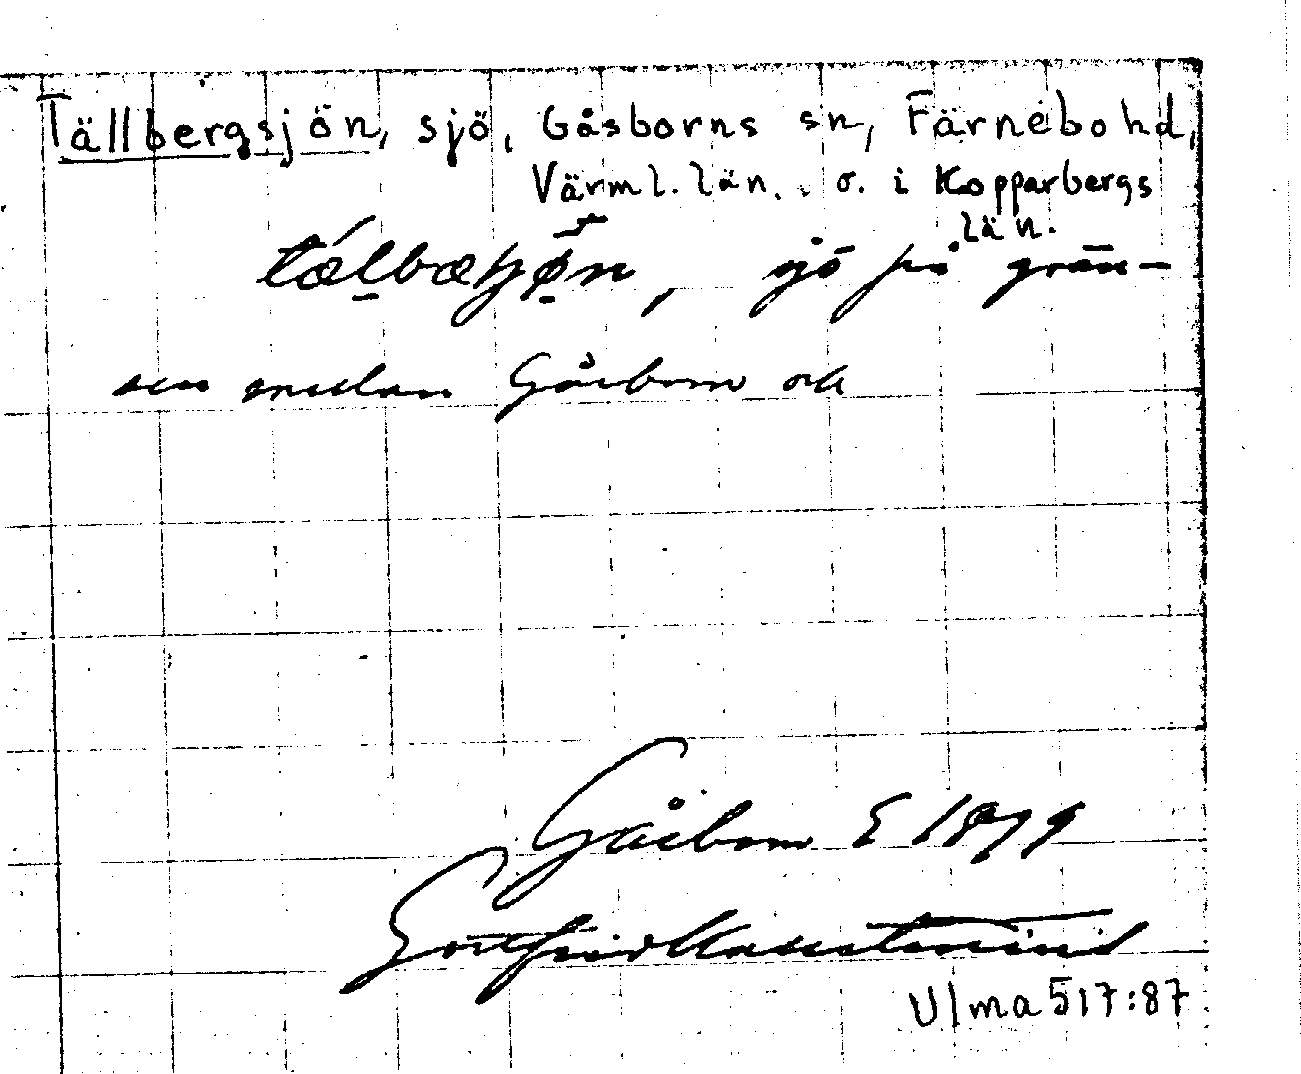 Tällbergsjön, sjö, Gåsborns sn, Färnebo hd,
Värml. län. o. i Kopparbergs
län.
sjö på grän-
sen mellan Gåsborn och
Gåsborn E 1879
Gottfrid Kallstenius
Ulma 517:87